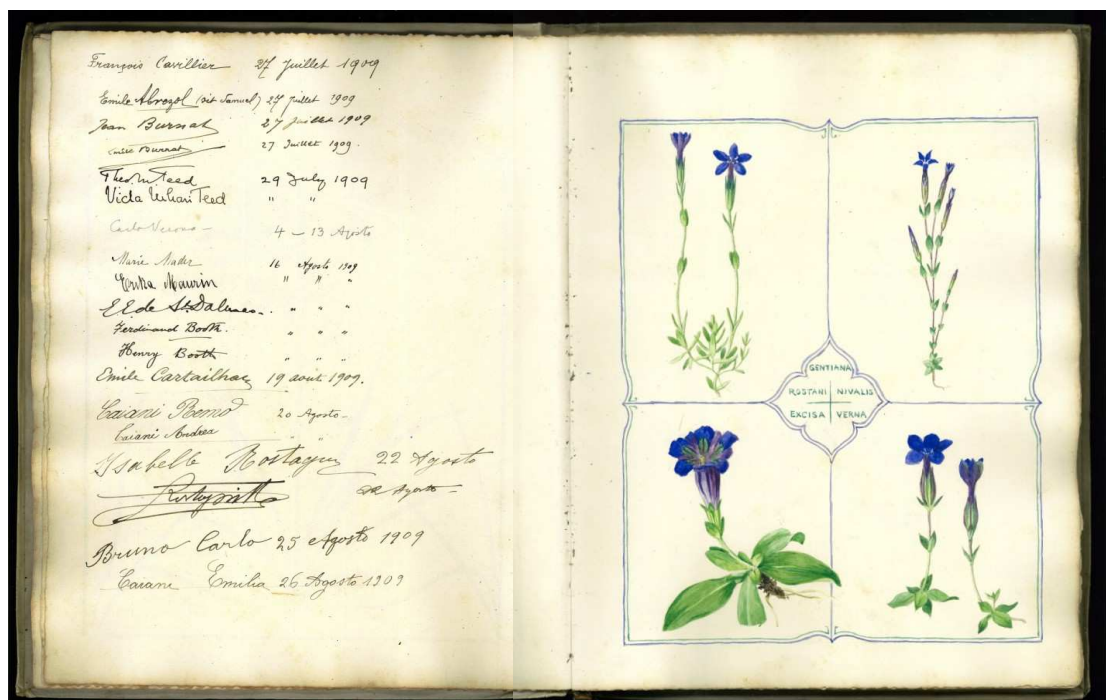 François Cavillier 27 Juillet 1909
Emile Abrezol (dit Samuel) 27 Juillet 1909
Jean Burnat 27 Juillet 1909
Emile Burnat 27 Juillet 1909.
Teed 29 July 1909
Teed " "
Carlo 4 – 13 Agosto
Marie Mader 16 Agosto 1909
Erika Maurin " " "
E E de St Dalmas. " " "
Ferdinand Booth. " " "
Henry Booth " " "
Emile Cartailhac 19 août 1909.
Caiani Remo 20 Agosto –
Caiani Andrea " "
Isabelle 22 Agosto
22 Agosto –
Bruno Carlo 25 Agosto 1909
Caiani Emilia 26 Agosto 1909
GENTIANA
ROSTANI NIVALIS
EXCISA VERNA